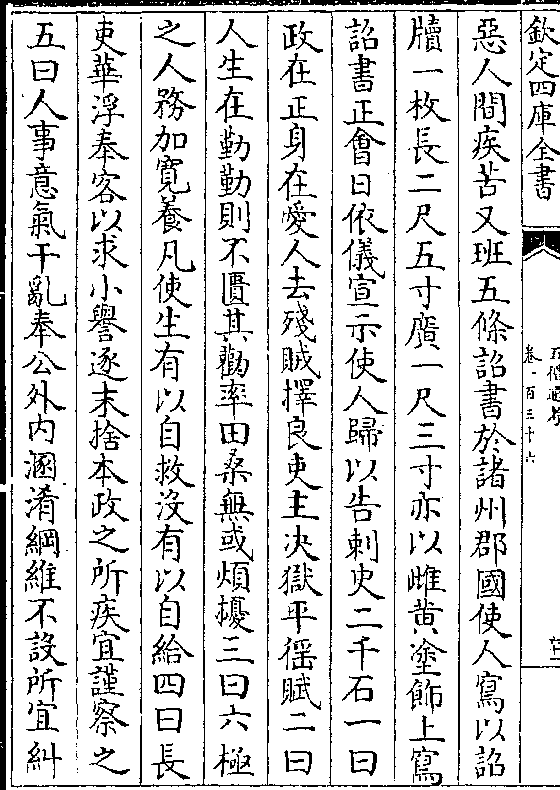 欽定四庫全書
五禮通考
卷一百三十六
惡人間疾苦又班五條詔書於諸州郡國使人寫以詔
牘一枚長二尺五寸廣一尺三寸亦以雌黃塗飾上寫
詔書正會日依儀宣示使人歸以告刺史二千石一曰
政在正身在愛人去殘賊擇良吏主決獄平徭賦二曰
人生在勤勤則不匱其勸率田桑無或煩擾三曰六極
之人務加寛養凡使生有以自救沒有以自給四曰長
吏華浮奉客以求小譽逐末捨本政之所疾宜謹察之
五曰人事意氣干亂奉公外内溷淆綱維不設所宜糾